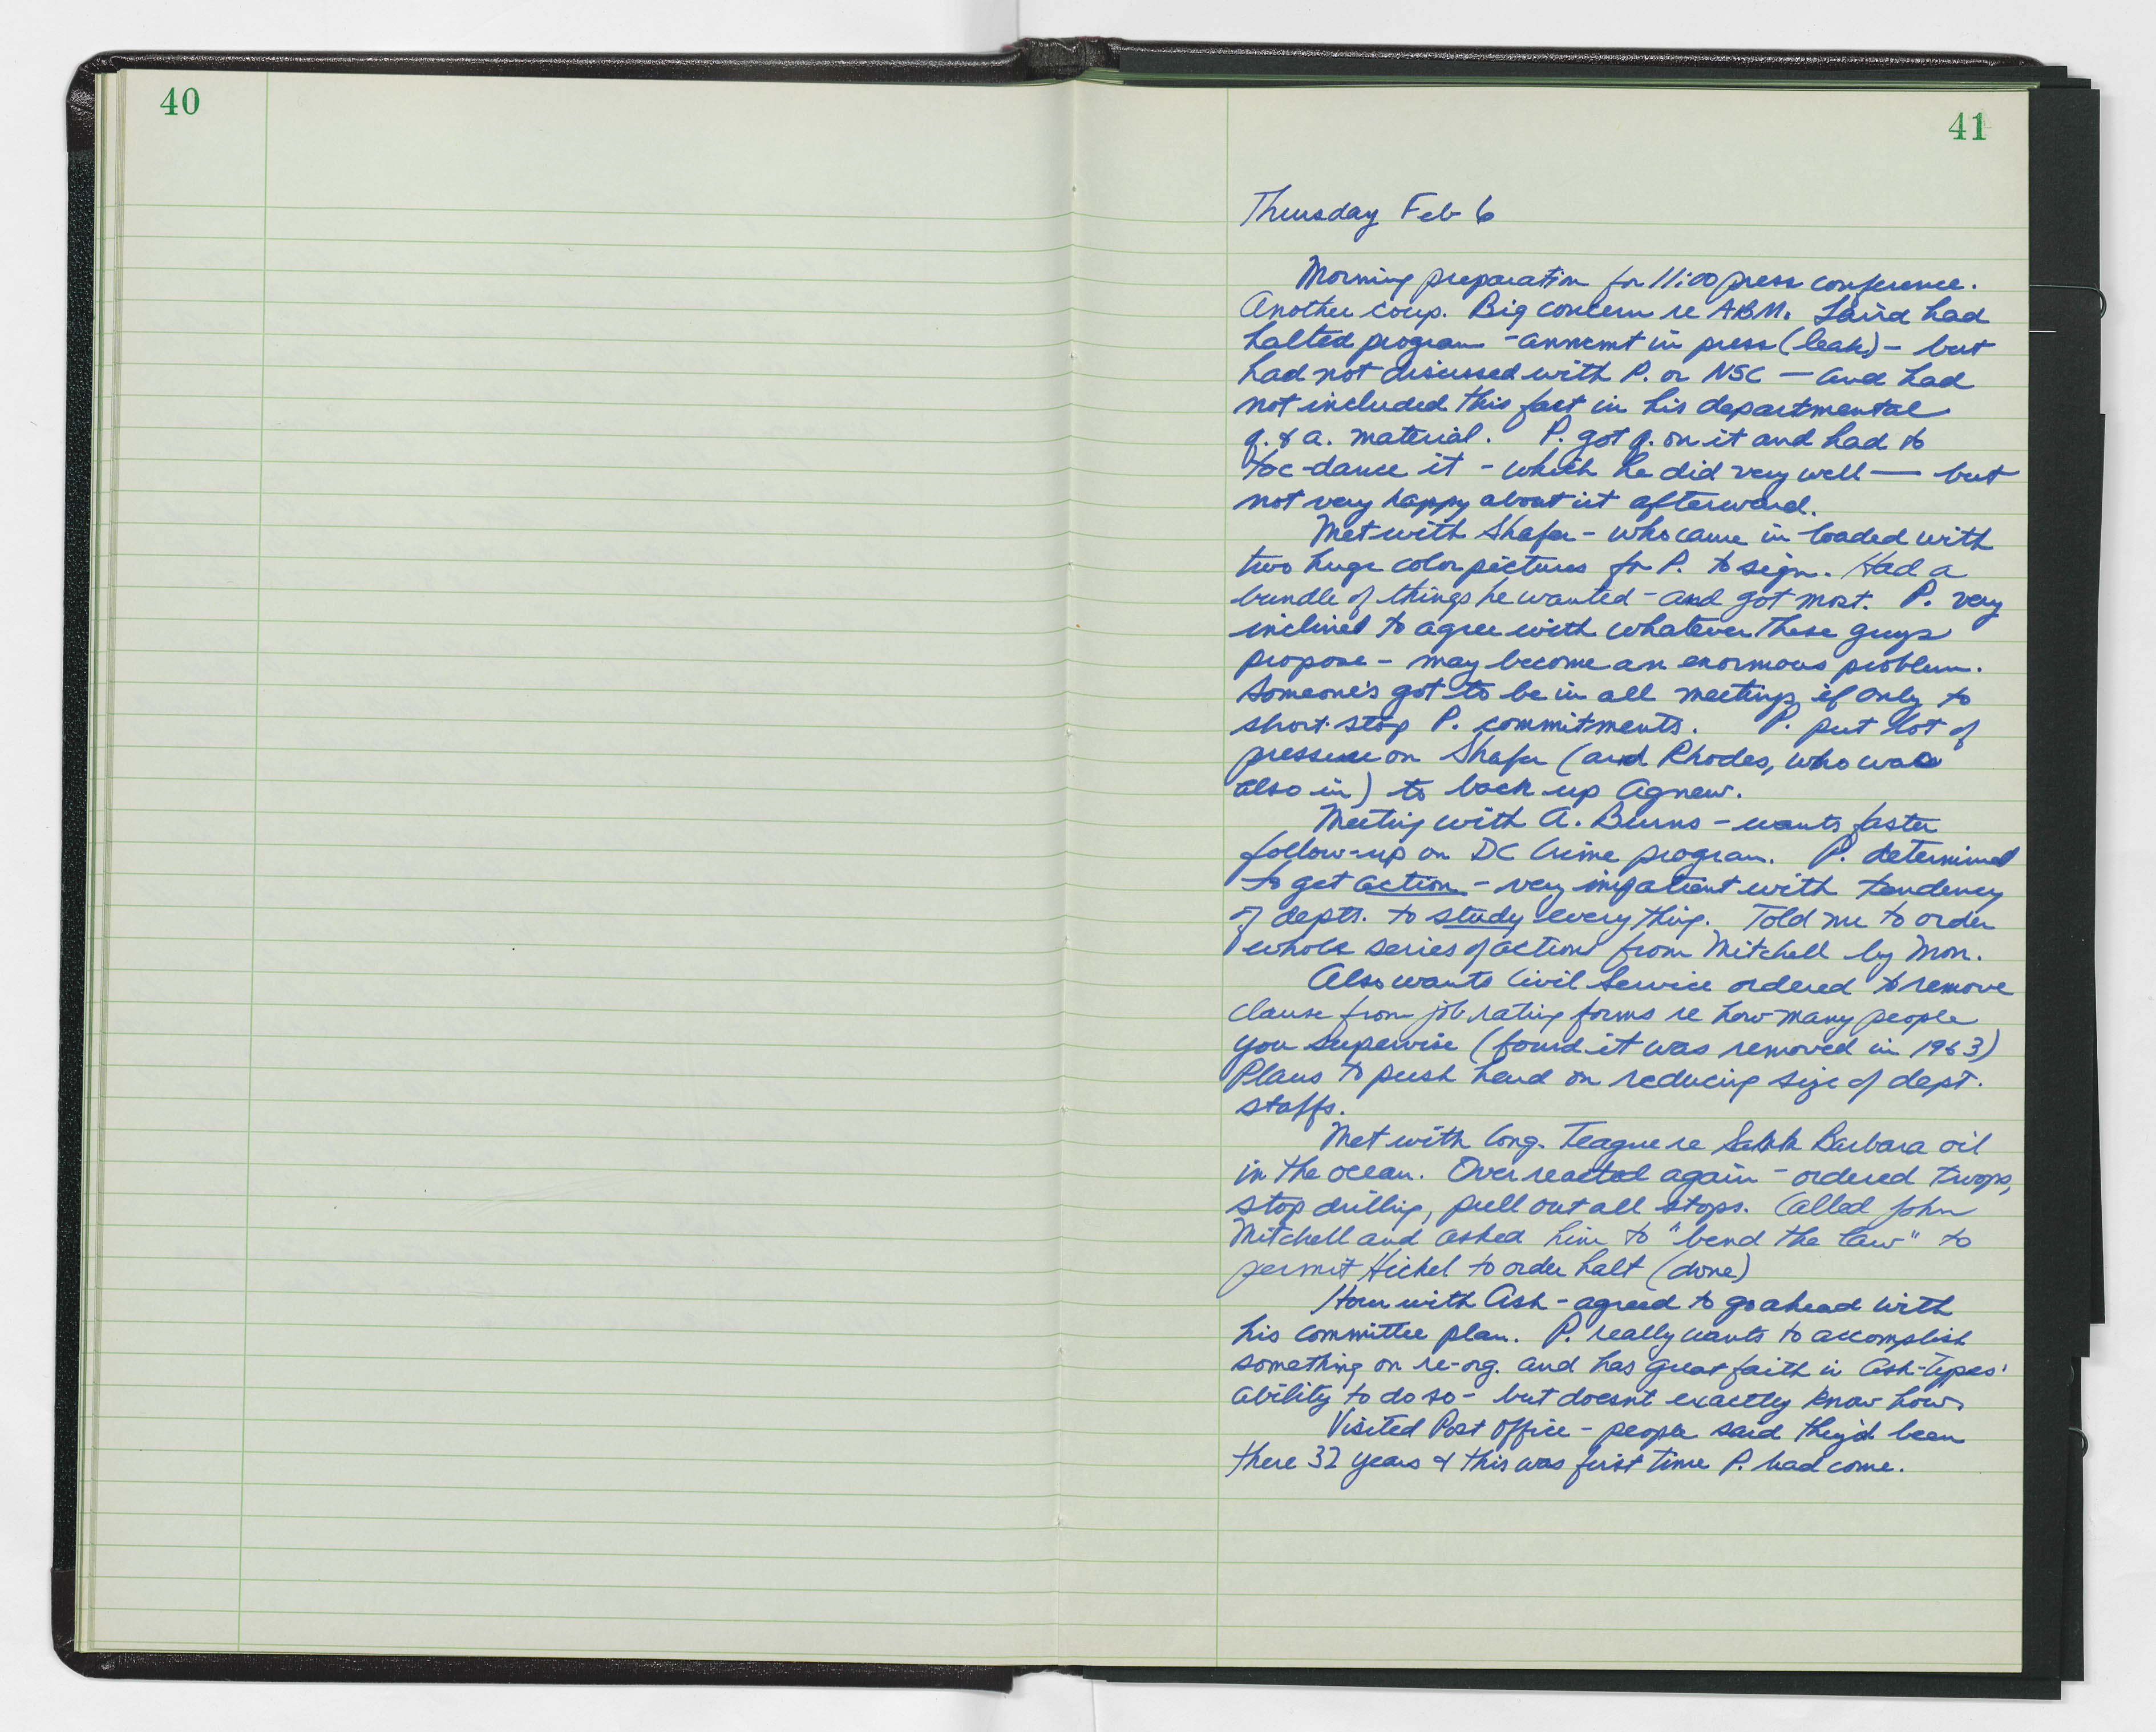 40
41
Thursday Feb 6
Morning preparation for 11:00 press conference.
Another coup. Big concern re ABM. Laird had
halted program - anncmt in press (leak) - but
had not discussed with P. or NSC — and had
not included this fact in his departmental
q. & a. material. P. got q. on it and had to
toe-dance it - which he did very well — but
not very happy about it afterward.
Met with Shafer - who came in loaded with
two huge color pictures for P. to sign. Had a
bundle of things he wanted - and got most. P. very
inclined to agree with whatever these guys
propose - may become an enormous problem.
Someone's got to be in all meetings if only to
short-stop P. commitments. P. put lot of
pressure on Shafer (and Rhodes, who was
also in) to back up Agnew.
Meeting with A. Burns - wants faster
follow-up on DC Crime program. P. determined
to get action - very impatient with tendency
of depts. to study everything. Told me to order
whole series of action from Mitchell by Mon.
Also wants Civil Service ordered to remove
clause from job rating forms re how many people
you supervise (found it was removed in 1963)
Plans to push hard on reducing size of dept.
staffs.
Met with Cong. Teague re Santa Barbara oil
in the ocean. Over reacted again - ordered troops,
stop drilling, pull out all stops. Called John
Mitchell and asked him to "bend the law" to
permit Hickel to order halt (done)
Hour with Ash - agreed to go ahead with
his committee plan. P. really wants to accomplish
something on re-org. and has great faith in Ash-types'
ability to do so - but doesn't exactly know how.
Visited Post Office - people said they'd been
there 32 years & this was first time P. had come.